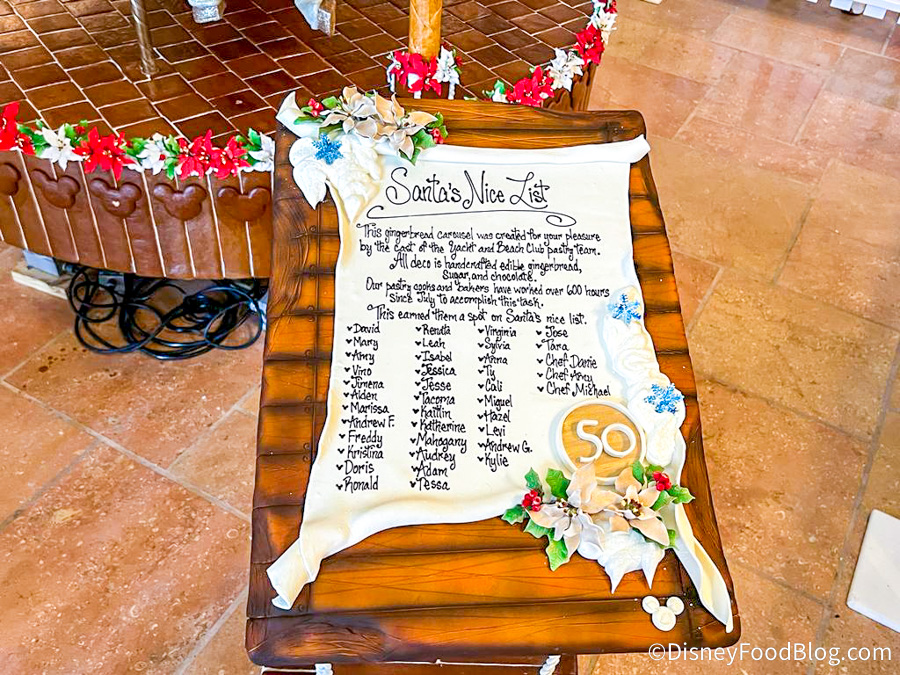 Santa's Nice List
This gingerbread carousel was created for your pleasure
by the Cast of the Yacht and Beach Club pastry team.
All deco is handcrafted edible gingerbread,
sugar, and chocolate.
Our pastry cooks and bakers have worked over 600 hours
since July to accomplish this task.
This earned them a spot on Santa's nice list.
David
Mary
Amy
Vino
Jimena
Aiden
Marissa
Andrew F.
Freddy
Kristina
Doris
Ronald
Renata
Leah
Isabel
Jessica
Jesse
Tacoma
Kaitlin
Katherine
Mahogany
Audrey
Adam
Tessa
Virginia
Sylvia
Anna
Ty
Cali
Miguel
Hazel
Levi
Andrew G.
Kylie
Jose
Tara
Chef Danie
Chef Amy
Chef Michael
50
©DisneyFoodBlog.com